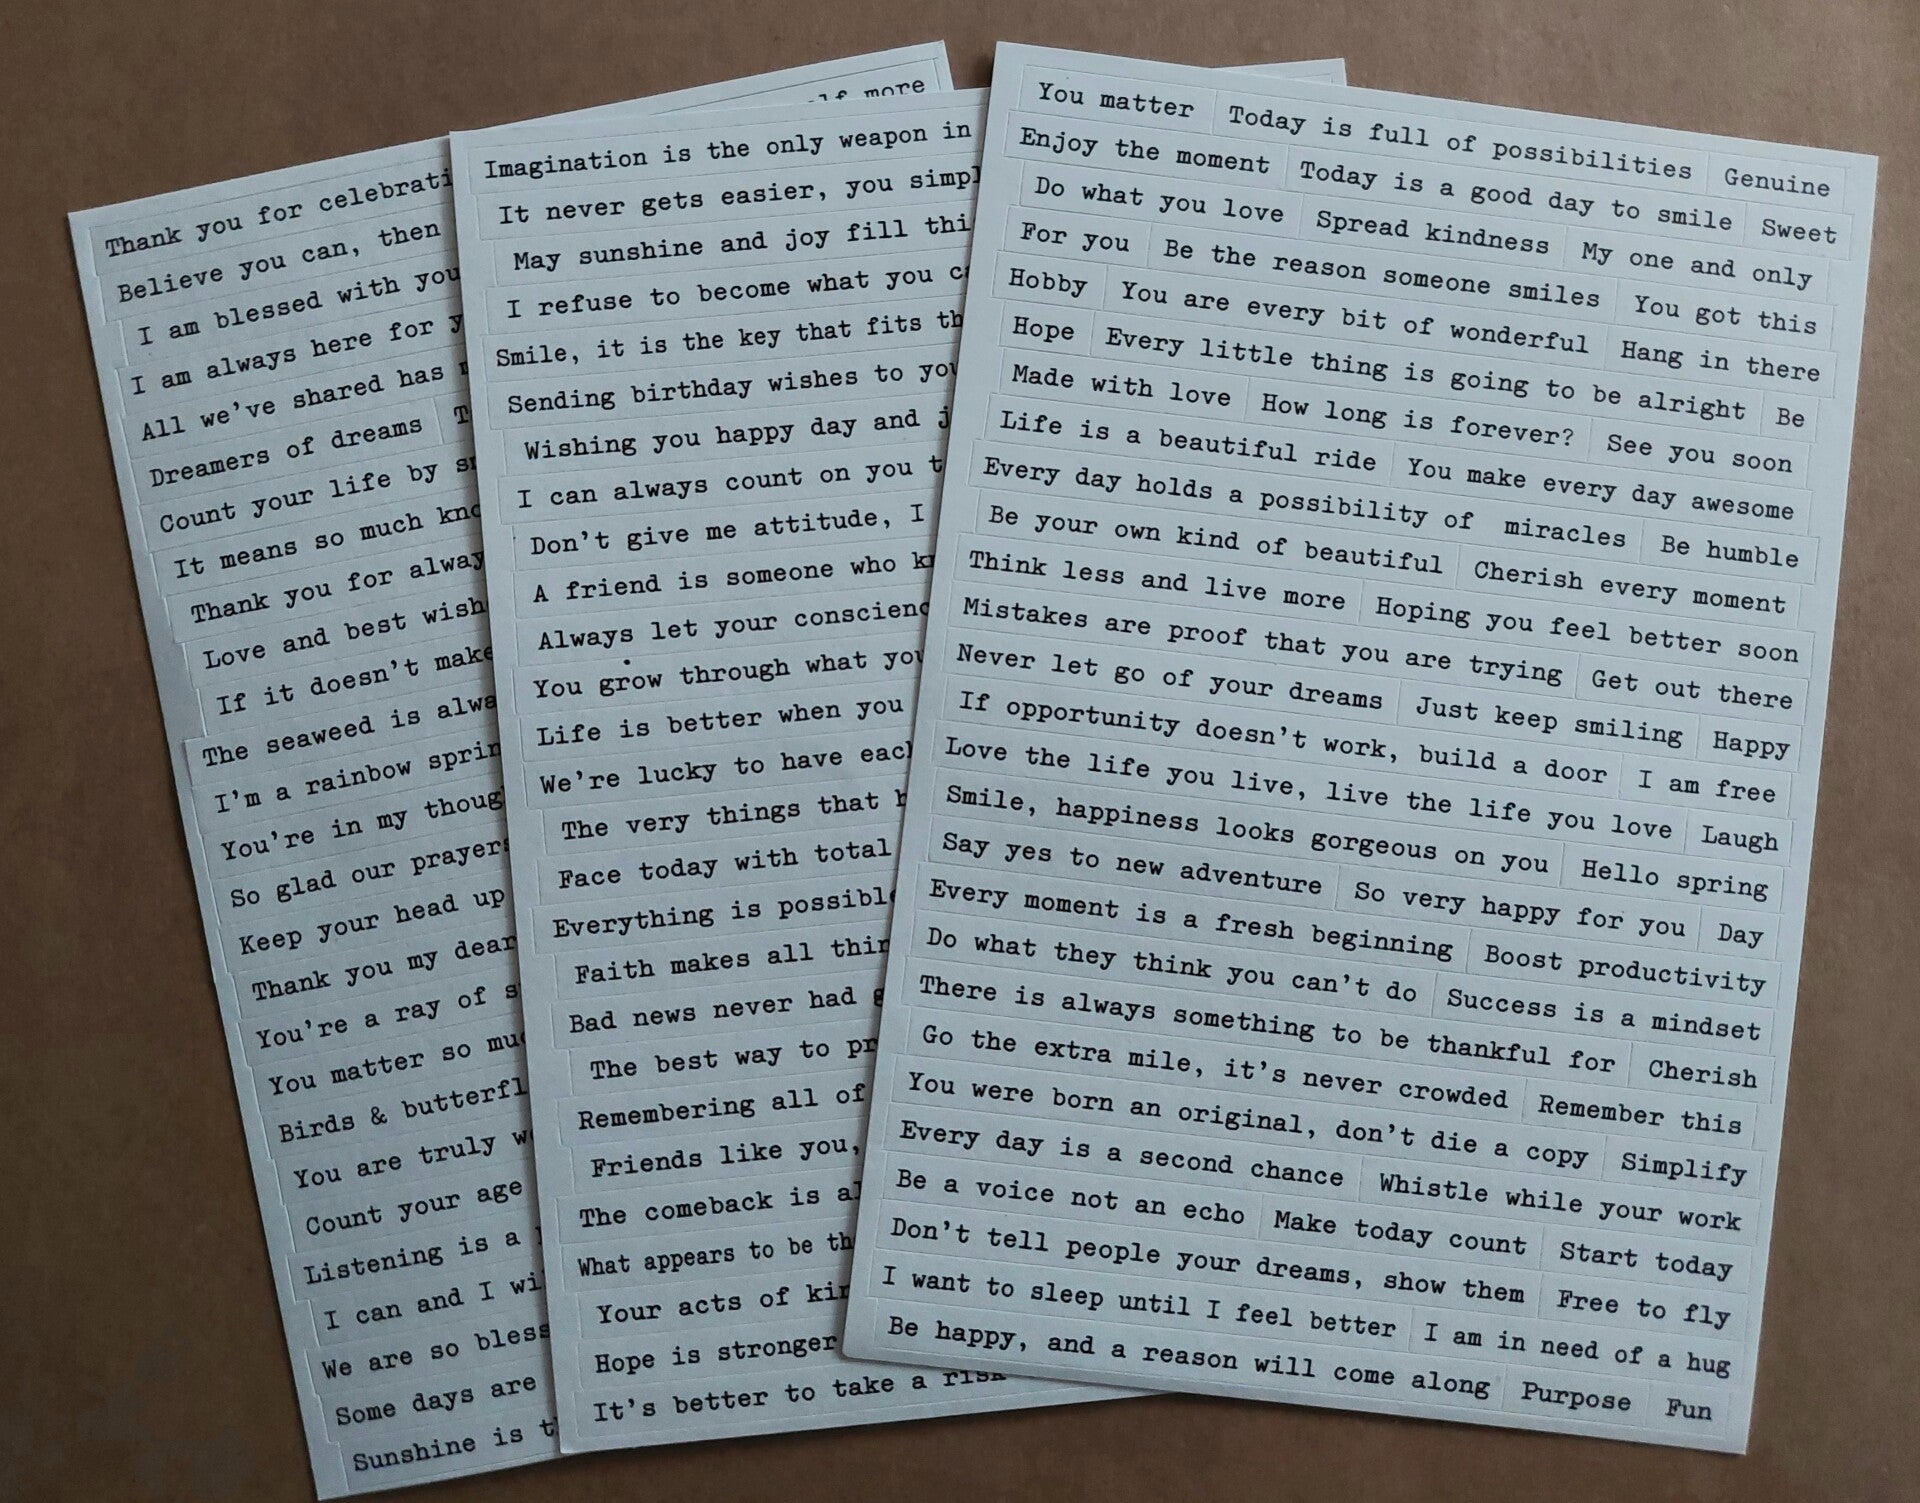 Thank you for
Believe you can, then
I am blessed with you
I am always here for
All we've shared has
Dreamers of dreams
Count your life by
It means so much
Thank you for
Love and best
If it doesn't make
The seaweed is
I'm a rainbow
You're in my
So glad our
Keep your head up
Thank you my dear
You're a ray of
You matter so
Birds &
You are truly
Count your age
Listening is a
I can and I
We are so
Some days are
Sunshine is
more
Imagination is the only weapon in
It never gets easier, you
May sunshine and joy fill
I refuse to become what you
Smile, it is the key that fits
Sending birthday wishes to
Wishing you happy day and
I can always count on you
Don't give me attitude, I
A friend is someone who
Always let your
You grow through what
Life is better when you
We're lucky to have
The very things that
Face today with total
Everything is possible
Faith makes all
Bad news never had
The best way to
Remembering all of
Friends like you,
The comeback is
What appears to be
Your acts of
Hope is stronger
It's better to take a risk
You matter Today is full of possibilities Genuine
Enjoy the moment Today is a good day to smile Sweet
Do what you love Spread kindness My one and only
For you Be the reason someone smiles You got this
Hobby You are every bit of wonderful Hang in there
Hope Every little thing is going to be alright Be
Made with love How long is forever? See you soon
Life is a beautiful ride You make every day awesome
Every day holds a possibility of miracles Be humble
Be your own kind of beautiful Cherish every moment
Think less and live more Hoping you feel better soon
Mistakes are proof that you are trying Get out there
Never let go of your dreams Just keep smiling Happy
If opportunity doesn't work, build a door I am free
Love the life you live, live the life you love Laugh
Smile, happiness looks gorgeous on you Hello spring
Say yes to new adventure So very happy for you Day
Every moment is a fresh beginning Boost productivity
Do what they think you can't do Success is a mindset
There is always something to be thankful for Cherish
Go the extra mile, it's never crowded Remember this
You were born an original, don't die a copy Simplify
Every day is a second chance Whistle while your work
Be a voice not an echo Make today count Start today
Don't tell people your dreams, show them Free to fly
I want to sleep until I feel better I am in need of a hug
Be happy, and a reason will come along Purpose Fun